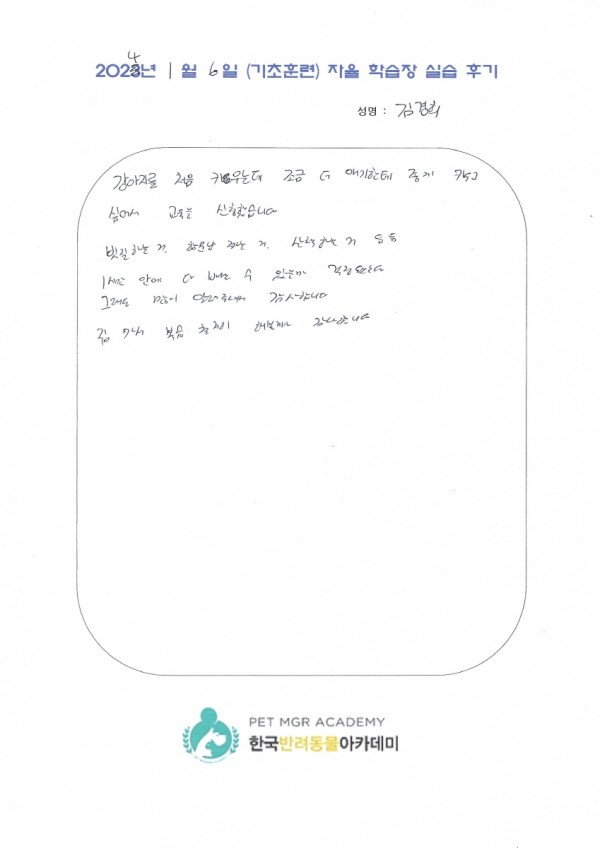 2024년 1월 6일 (기초훈련) 자율 학습장 실습 후기
성명 : 김경희
강아지를 처음 키우는데 조금 더 애기한테 좋게 키우고
싶어서 교육을 신청했습니다
빗질하는 거, 산책하는 거 등등
1시간 안에 다 배울 수 있을까 걱정
그래도 많이 알려주셔서 감사합니다
집 가서 복습 철저히 해볼게요 감사합니다
PET MGR ACADEMY
한국반려동물아카데미